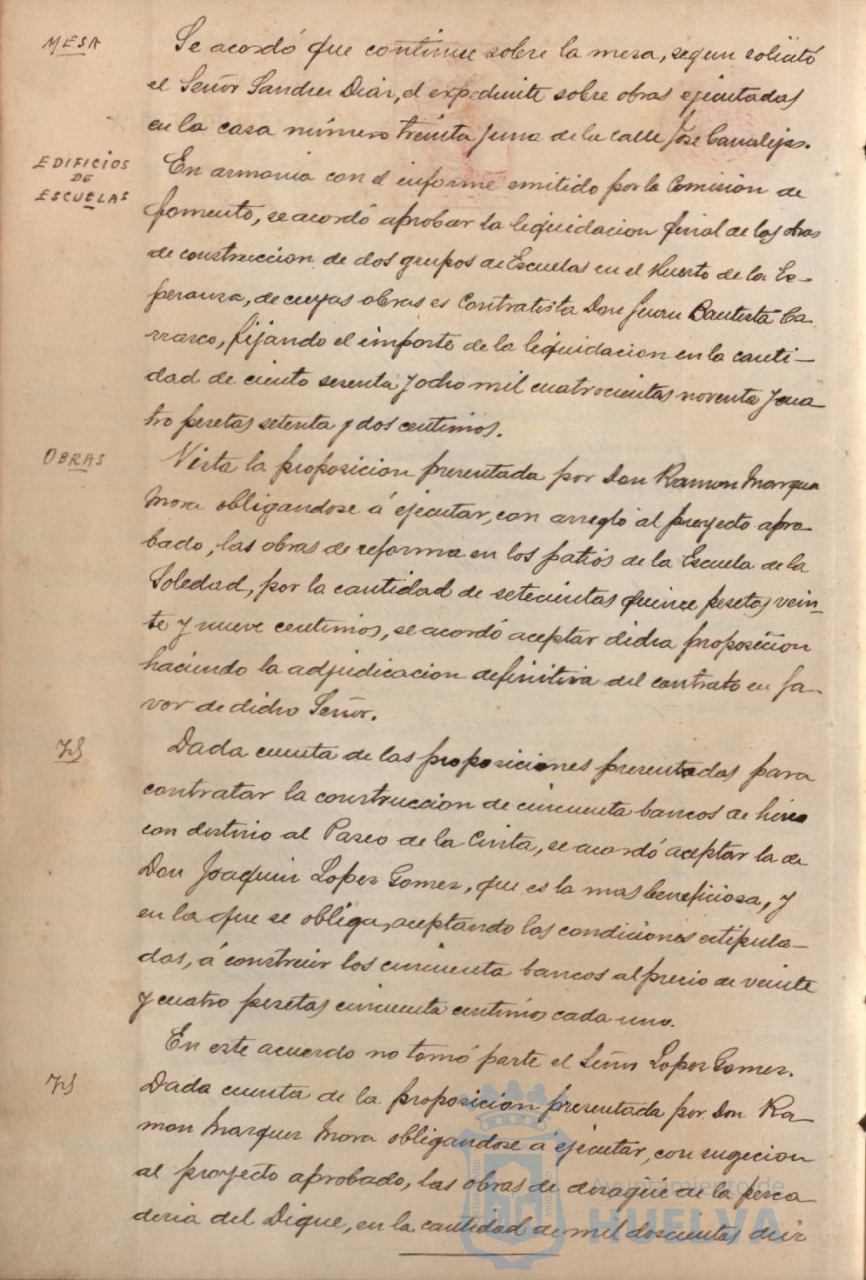 MESA
Se acordó que continue sobre la mesa, segun solicitó
el Señor Sanchez Diaz, el expediente sobre obras ejecutadas
en la casa número treinta y una de la calle José Canalejas.
EDIFICIOS
DE
ESCUELAS
En armonia con el informe emitido por la Comisión de
fomento, se acordó aprobar la liquidacion final de las obras
de construccion de dos grupos de Escuelas en el Huerto de la Es-
peranza, de cuyas obras es Contratista Don Juan Bautista Ca
rrasco, fijando el importe de la liquidacion en la canti-
dad de ciento sesenta y ocho mil cuatrocientas noventa y cua
tro pesetas setenta y dos centimos.
OBRAS
Vista la proposicion presentada por Don Ramon Marquez
Mora obligandose á ejecutar, con arreglo al proyecto apro-
bado, las obras de reforma en los patios de la Escuela de la
Soledad, por la cantidad de setecientas quince pesetas vein-
te y nueve centimos, se acordó aceptar dicha proposicion
haciendo la adjudicacion definitiva del contrato en fa-
vor de dicho Señor.
Dada cuenta de las proposiciones presentadas para
contratar la construccion de cincuenta bancos de hierro
con destino al Paseo de la Cinta, se acordó aceptar la de
Don Joaquin Lopez Gomez, que es la mas beneficiosa, y
en la que se obliga, aceptando las condiciones estipula-
das, á construir los cincuenta bancos al precio de veinte
y cuatro pesetas cincuenta centimos cada uno.
En este acuerdo no tomó parte el Señor Lopez Gomez.
Dada cuenta de la proposicion presentada por Don Ra-
mon Marquez Mora obligandose á ejecutar, con sugecion
al proyecto aprobado, las obras de desagüe de la pesca-
deria del Dique, en la cantidad de mil doscientas diez
Ayuntamiento de
HUELVA